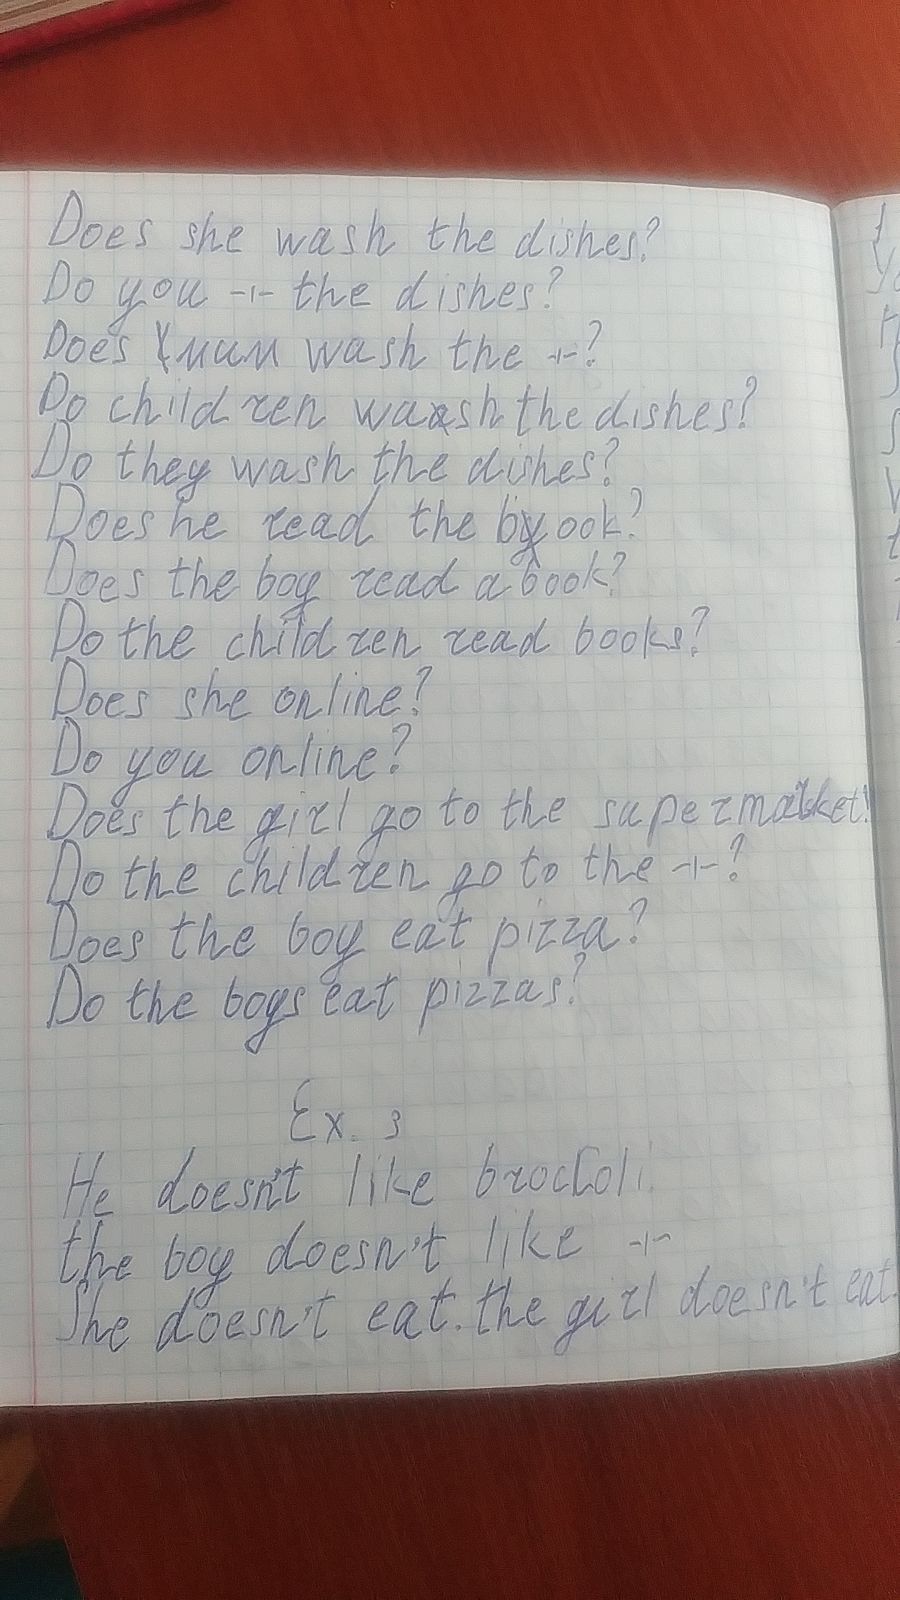 Does she wash the dishes?
Do you -ı- the dishes?
Does мам wash the -ı-?
Do children waash the dishes?
Do they wash the dishes?
Does he read the book?
Does the boy read a book?
Do the children read books?
Does she online?
Do you online?
Does the girl go to the supermarket?
Do the children go to the -ı-?
Does the boy eat pizza?
Do the boys eat pizzas?
Ex. 3
He doesn't like broccoli.
the boy doesn't like -ı-
She doesn't eat. the girl doesn't eat.